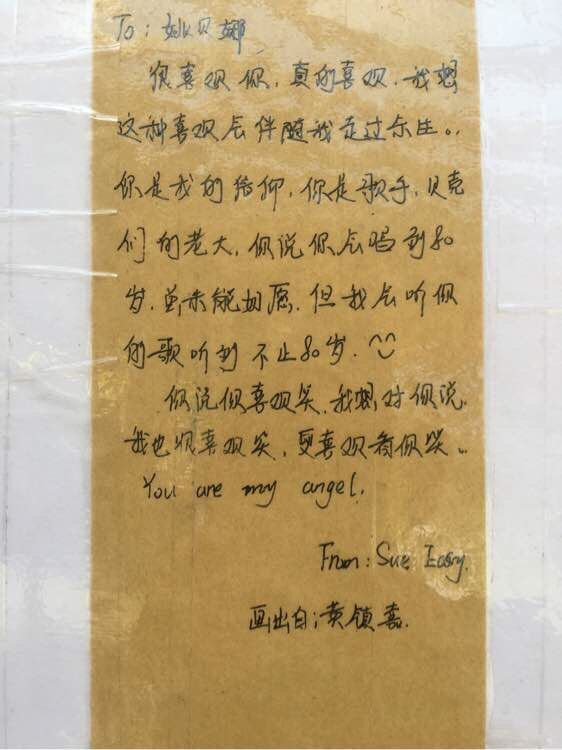 To：姚贝娜
很喜欢你，真的喜欢，我想
这种喜欢会伴随我走过余生。
你是我的信仰，你是歌手，贝克
们的老大，你说你会唱到80
岁，虽未能如愿，但我会听你
的歌听到不止80岁.
你说你喜欢笑，我想对你说，
我也很喜欢笑，更喜欢看你笑..
You are my angel.
From：Sue
画出自：黄镇嘉.